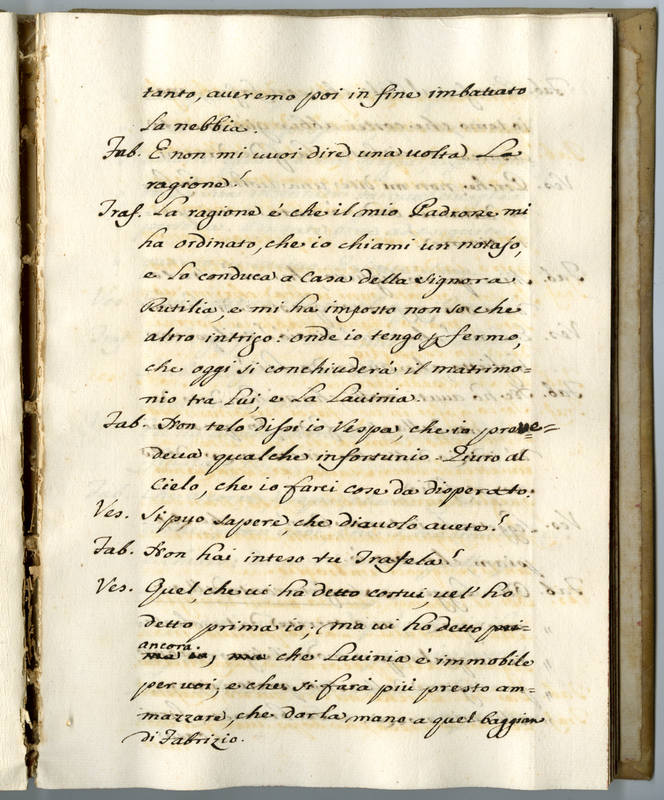 tanto, averemo poi in fine imbattato
la nebbia.
Fab. E non mi vuoi dire una volta La
ragione?
Traf. La ragione è che il mio Padrone mi
ha ordinato, che io chiami un notajo,
e lo conduca a Casa della Signora
Rutilia, e mi ha imposto non so che
altro intrigo: onde io tengo p fermo,
che oggi si conchiuderà il matrimo=
nio tra Lui, e La Lavinia.
Fab. Non telo dissi io Vespa, che io preve=
deva qualche infortunio. Giuro al
Cielo, che io farei cose da disperato.
Ves. Si può sapere, che diavolo avete?
Fab. Non hai inteso tu Trafela?
Ves. Quel, che vi ha detto costui, vel' ho
detto prima io; ma vi ho detto
ancora.
che Lavinia è immobile
per voi, e che si farà più presto am=
mazzare, che dar la mano a quel baggian
di Fabrizio.